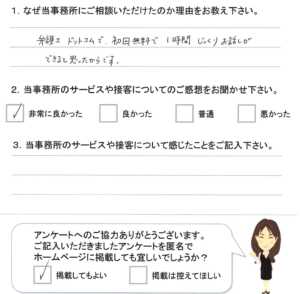 1. なぜ当事務所にご相談いただけたのか理由をお教え下さい。
弁護士ドットコムで、初回無料で1時間じっくりお話しが
できると思ったからです。
2. 当事務所のサービスや接客についてのご感想をお聞かせ下さい。
非常に良かった 良かった 普通 悪かった
3. 当事務所のサービスや接客について感じたことをご記入下さい。
アンケートへのご協力ありがとうございます。
ご記入いただきましたアンケートを匿名で
ホームページに掲載しても宜しいでしょうか？
掲載してもよい 掲載は控えてほしい